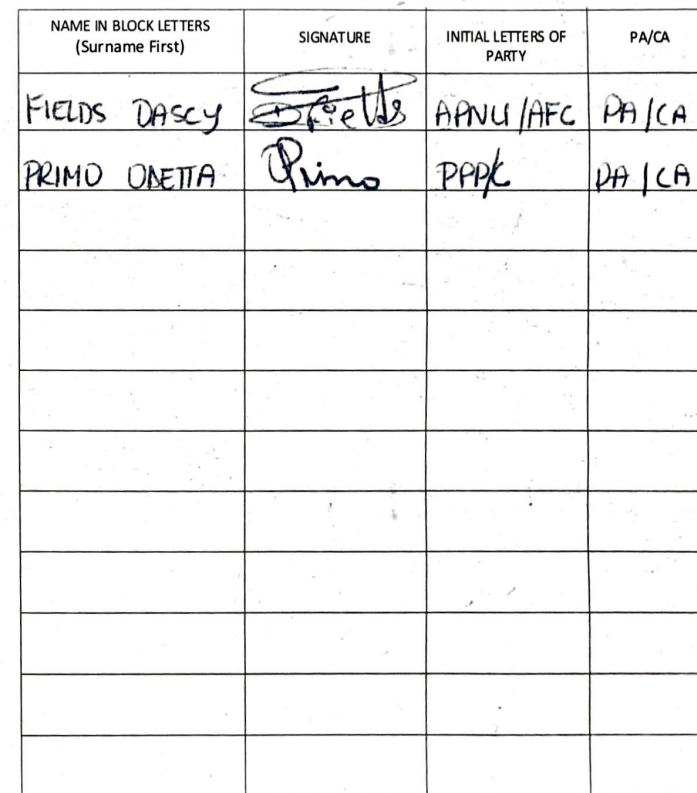 NAME IN BLOCK LETTERS
(Surname First)
SIGNATURE
INITIAL LETTERS OF
PARTY
PA/CA
FIELDS DASCY DFields APNU/AFC PA/CA
PRIMO ODETTA OPrimo PPP/C PA/CA